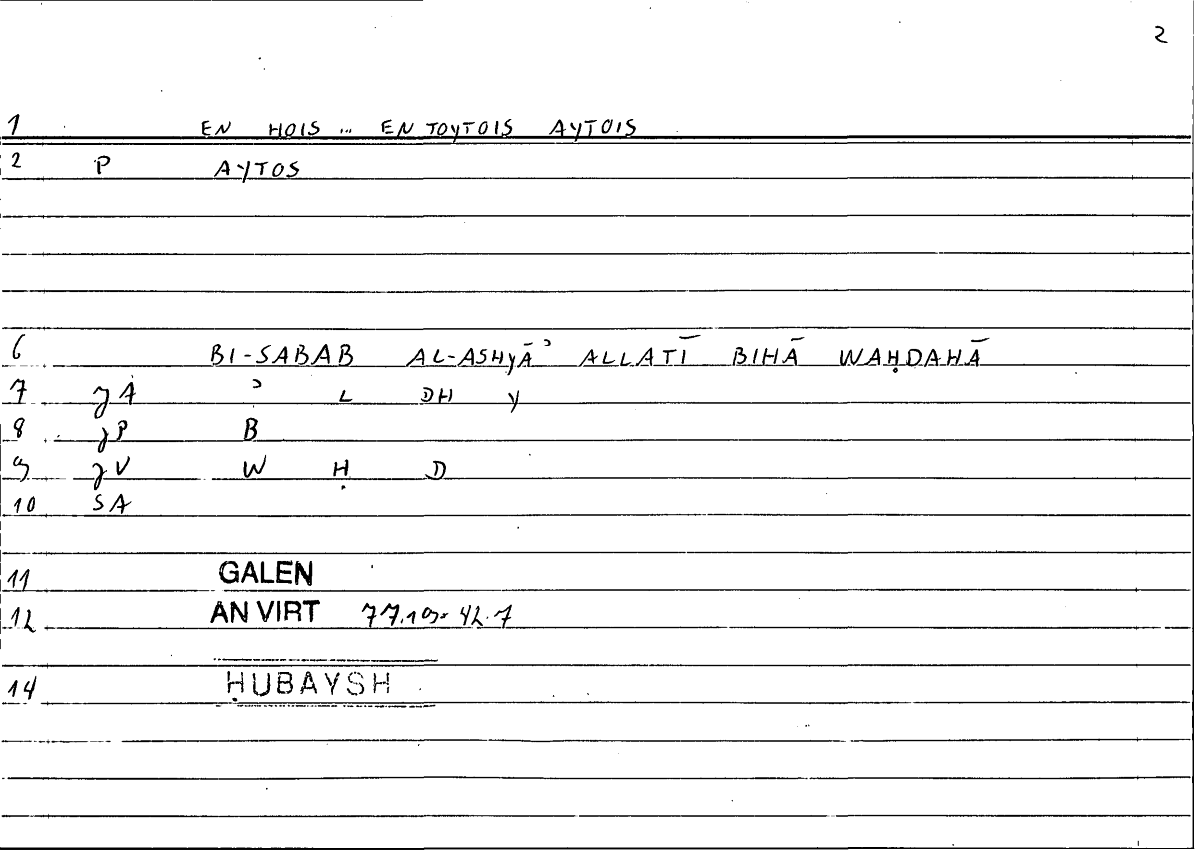 2
1 EN HOIS ... EN TOYTOIS AYTOIS
2 P AYTOS
6 BI-SABAB AL-ASHYĀʾ ALLATĪ BIHĀ WAḤDAHĀ
7 ʾ L DH Y
8 B
9 W Ḥ D
10 SA
11 GALEN
12 AN VIRT
14 ḤUBAYSH